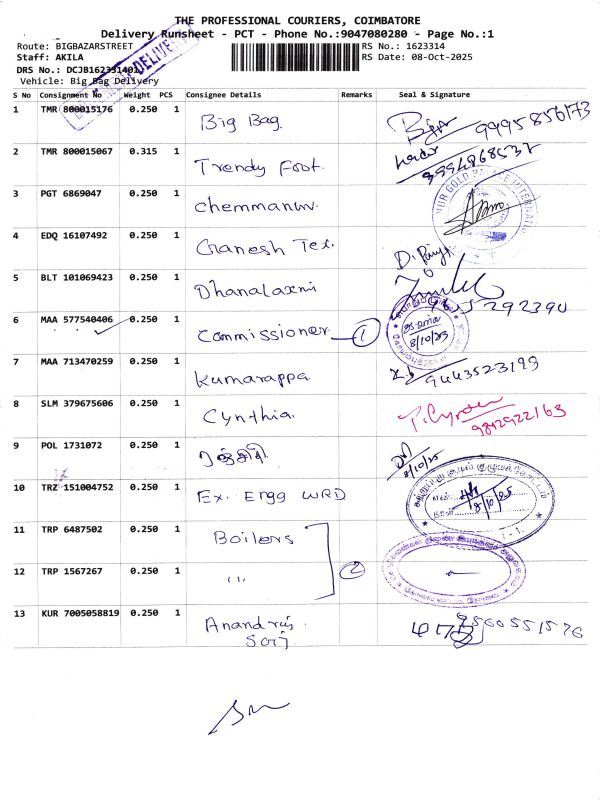 THE PROFESSIONAL COURIERS, COIMBATORE
Delivery Runsheet - PCT - Phone No.:9047080280 - Page No.:1
Route: BIGBAZARSTREET
RS No.: 1623314
Staff: AKILA
RS Date: 08-Oct-2025
DRS No.: DCJB1623314
DELIVERY
Vehicle: Big Bag Delivery
S No Consignment No Weight PCS Consignee Details Remarks Seal & Signature
1 TMR 800015176 0.250 1 Big Bag. 9995856173
2 TMR 800015067 0.315 1 Trendy Foot. 9994868537
3 PGT 6869047 0.250 1 Chemmanur.
4 EDQ 16107492 0.250 1 Ganesh Tex.
5 BLT 101069423 0.250 1 Dhanalaxmi 9655292390
6 MAA 577540406 0.250 1 Commissioner 1 8/10/25
7 MAA 713470259 0.250 1 Kumarappa. 9443523193
8 SLM 379675606 0.250 1 Cynthia. 9842922163
9 POL 1731072 0.250 1 8/10/25
10 TRZ 151004752 0.250 1 Ex. Engg WRD 8/10/25
11 TRP 6487502 0.250 1 Boilers
12 TRP 1567267 0.250 1 " 2
13 KUR 7005058819 0.250 1 Anandraj 9560551576